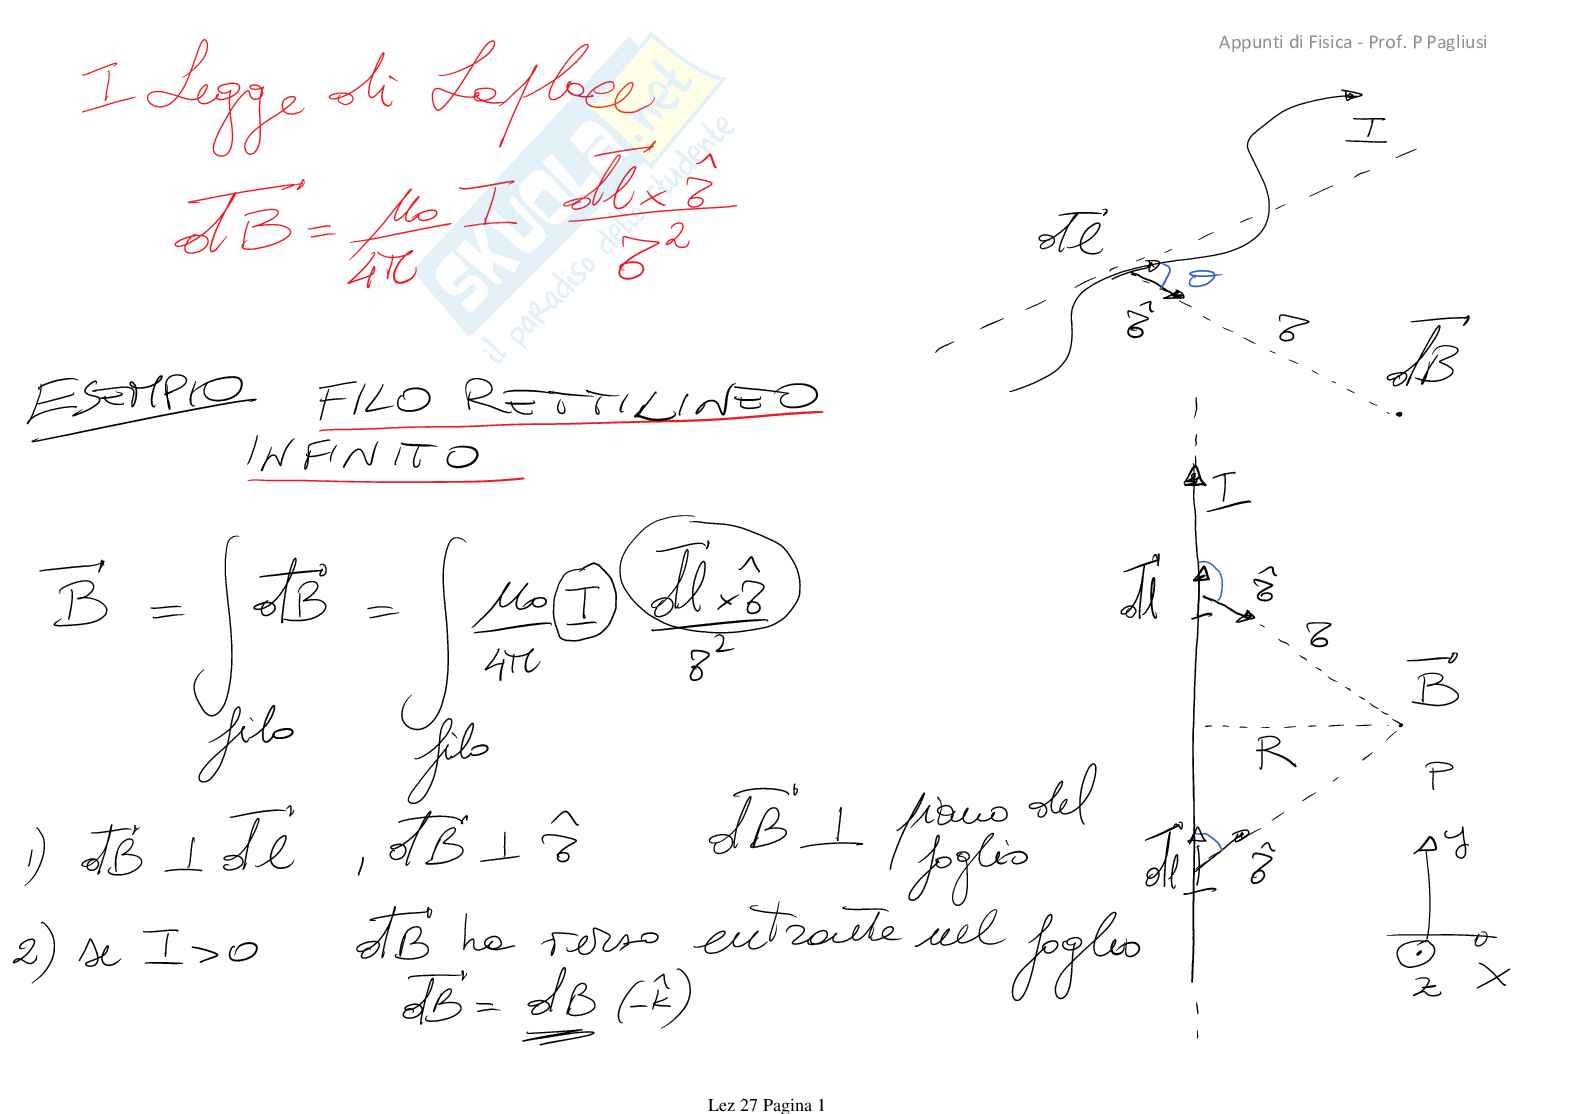 Appunti di Fisica - Prof. P Pagliusi
I Legge di Laplace
dB = μ₀/4π I dl × r̂ / r²
SKUOLA.net
il paradiso dello studente
I
dl
θ
r̂
r
dB
ESEMPIO FILO RETTILINEO
INFINITO
I
B = ∫filo dB = ∫filo μ₀/4π I dl × r̂ / r²
dl
r̂
r
B
R
P
1) dB ⊥ dl , dB ⊥ r̂ dB ⊥ piano del
foglio
dl
r̂
y
2) se I>0 dB ha verso entrante nel foglio
dB = dB (-k̂)
z
x
Lez 27 Pagina 1